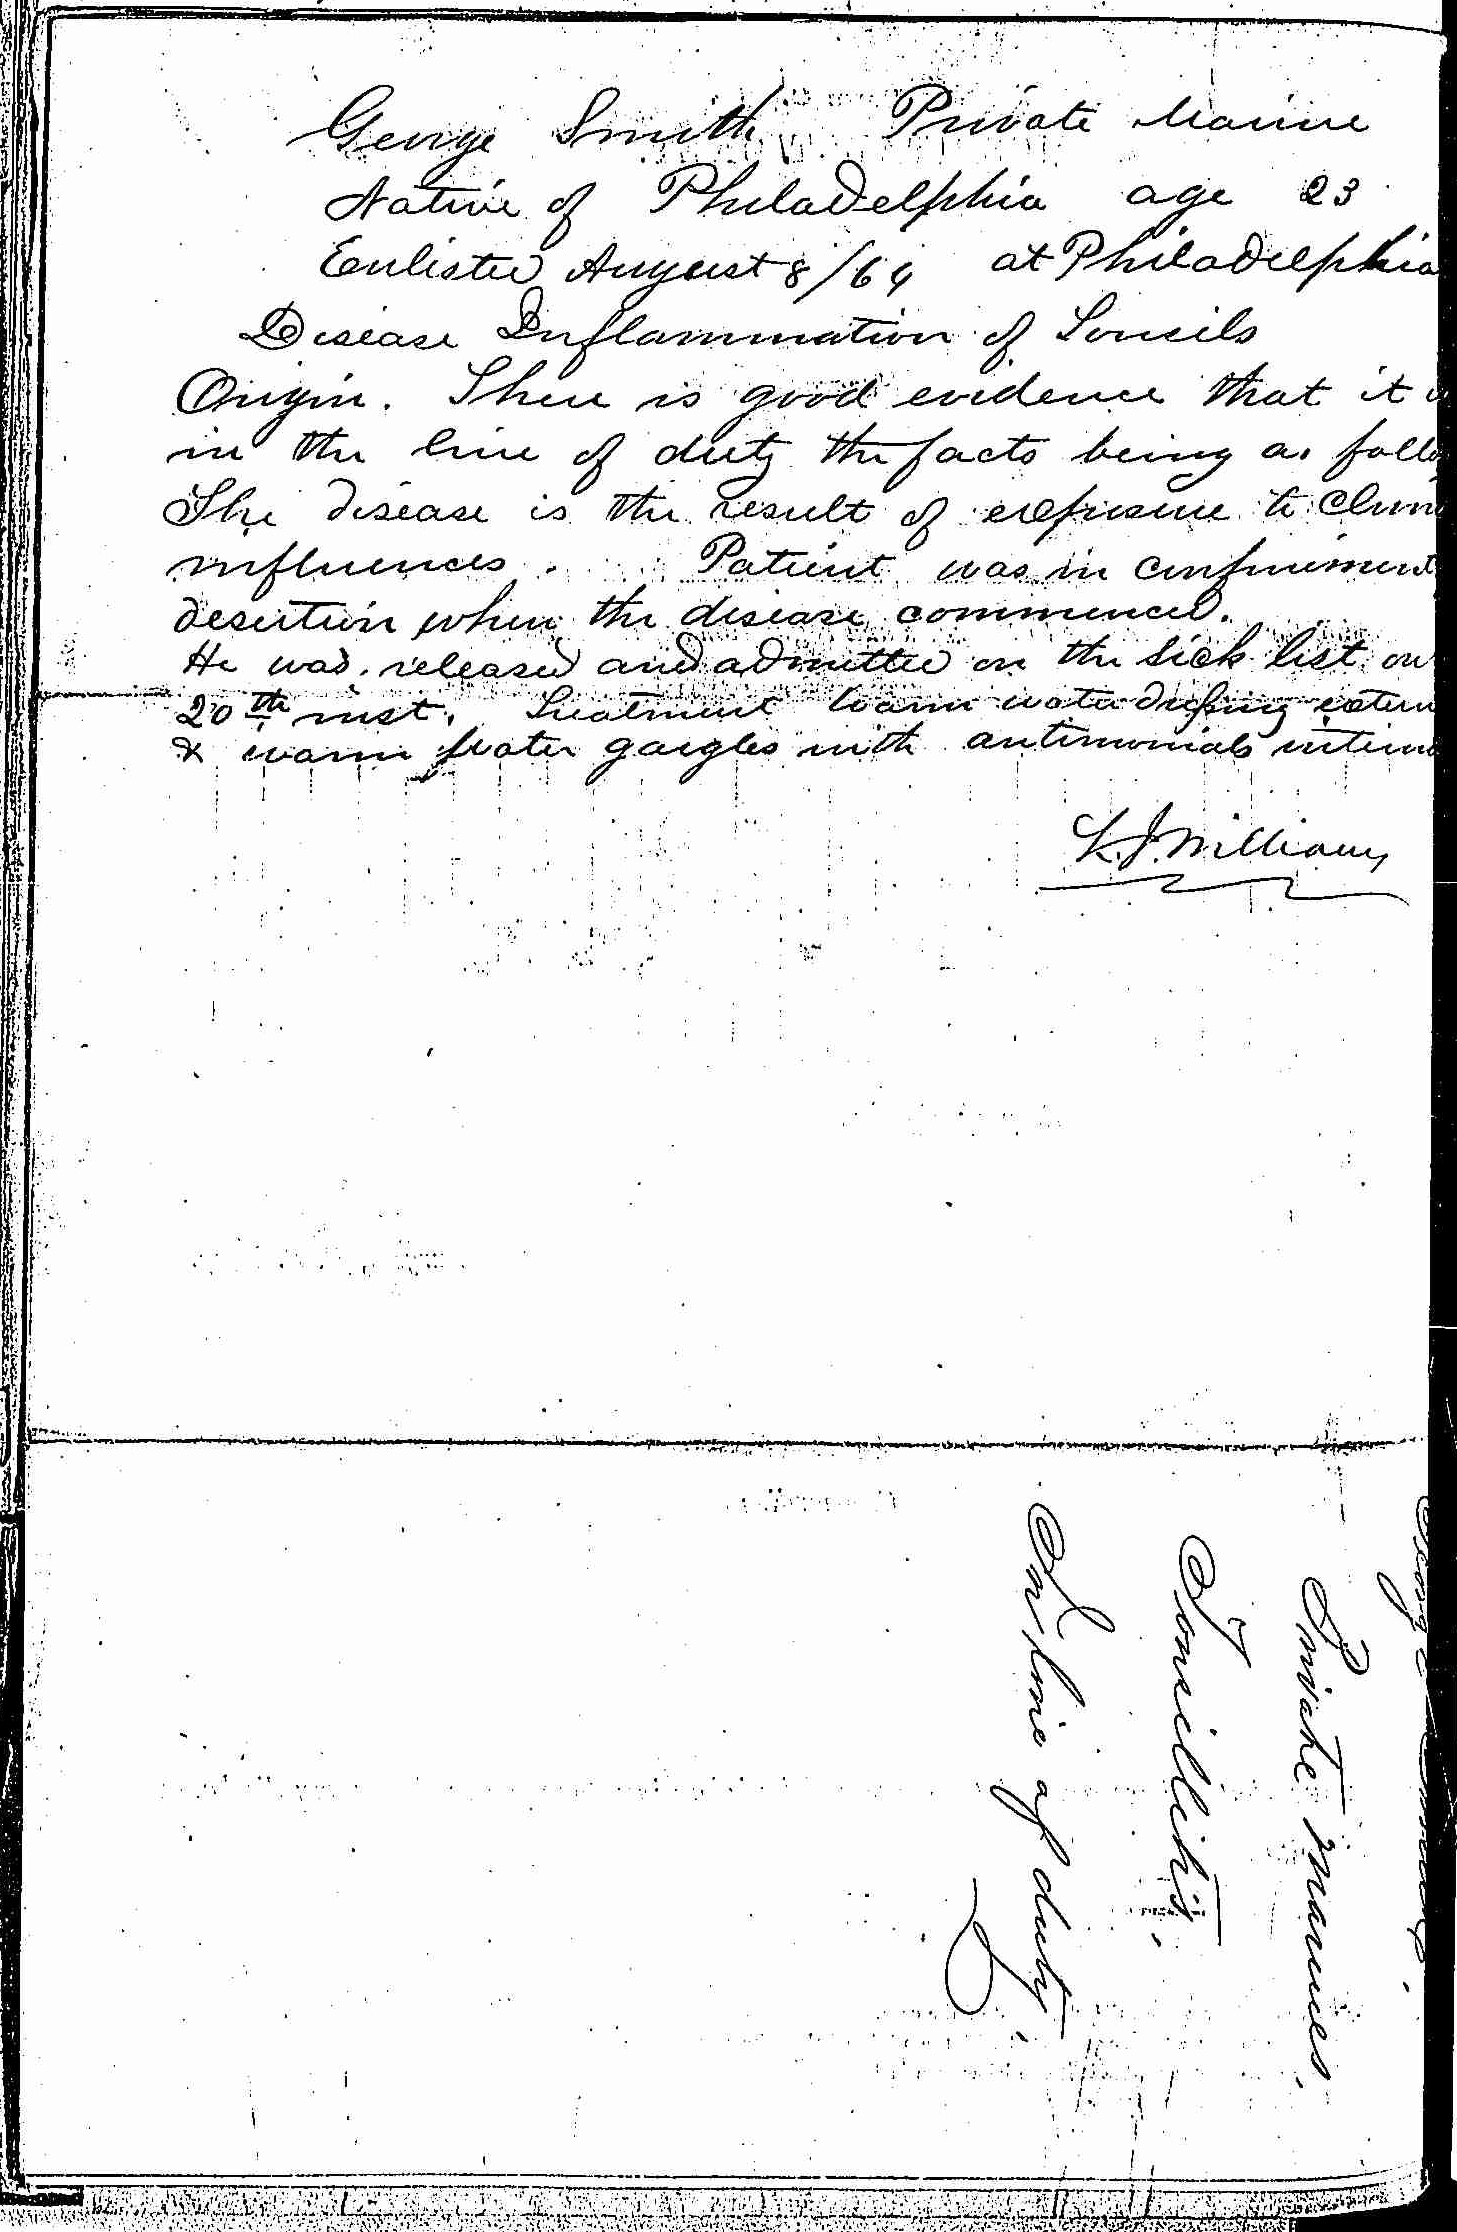 George Smith Private Marine
Native of Philadelphia age 23
Enlisted August 8/64 at Philadelphia
Disease Inflammation of Tonsils
Origin. There is good evidence that it
in the line of duty the facts being as follo
The disease is the result of exposure to Clim
influences. Patient was in confinement
desertion when the disease commenced.
He was released and admitted on the sick list on
20th inst. Treatment warm water dressing extern
& warm water gargles with antimonials intern
K. J. Williams
George Smith
Private Marines,
Tonsillitis,
In line of duty,